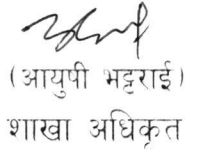 (आयुषी भट्टराई)
शाखा अधिकृत